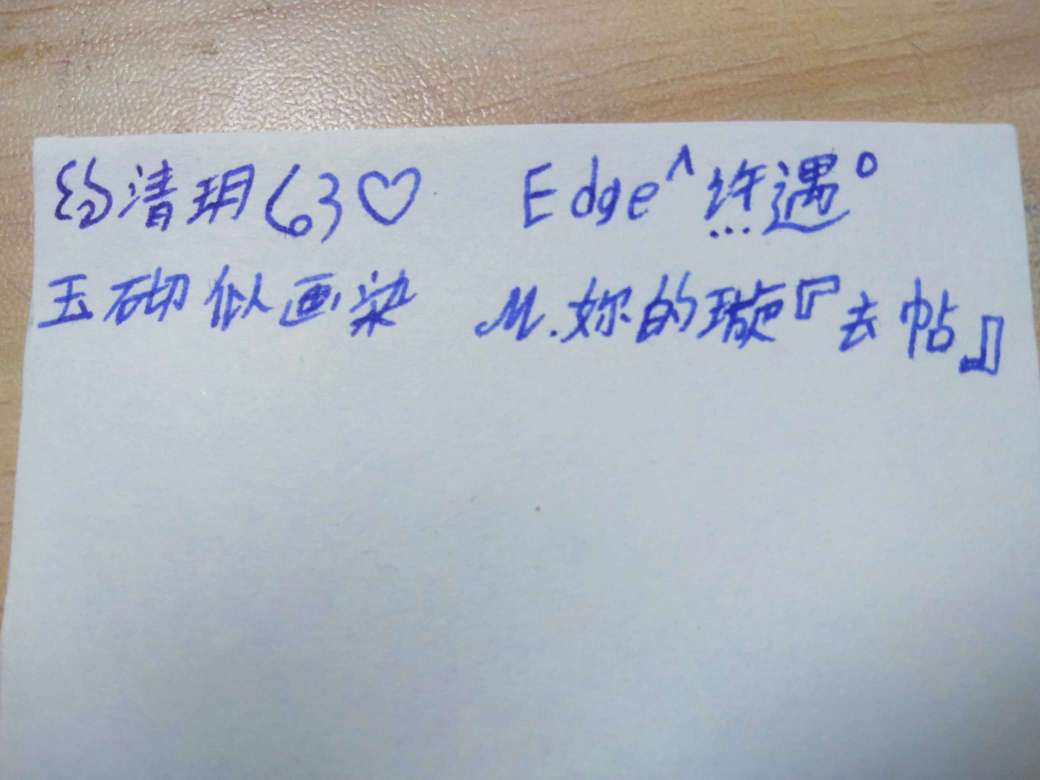 清玥63♡ Edge^终遇°
玉砌似画染 M.妳的璇『去帖』